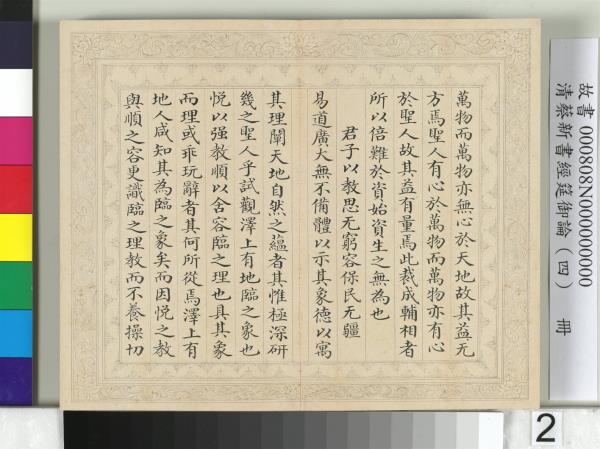 萬物而萬物亦無心於天地故其益无
方焉聖人有心於萬物而萬物亦有心
於聖人故其益有量焉此裁成輔相者
所以倍難於資始資生之無為也
君子以教思无窮容保民无疆
易道廣大無不備體以示其象德以寓
其理闡天地自然之蘊者其惟極深研
幾之聖人乎試觀澤上有地臨之象也
悅以强教順以含容臨之理也具其象
而理或乖玩辭者其何所從焉澤上有
地人咸知其為臨之象矣而因悅之教
與順之容更識臨之理教而不養操切
故書 000808N000000000
清蔡新書經筵御論（四） 冊
2